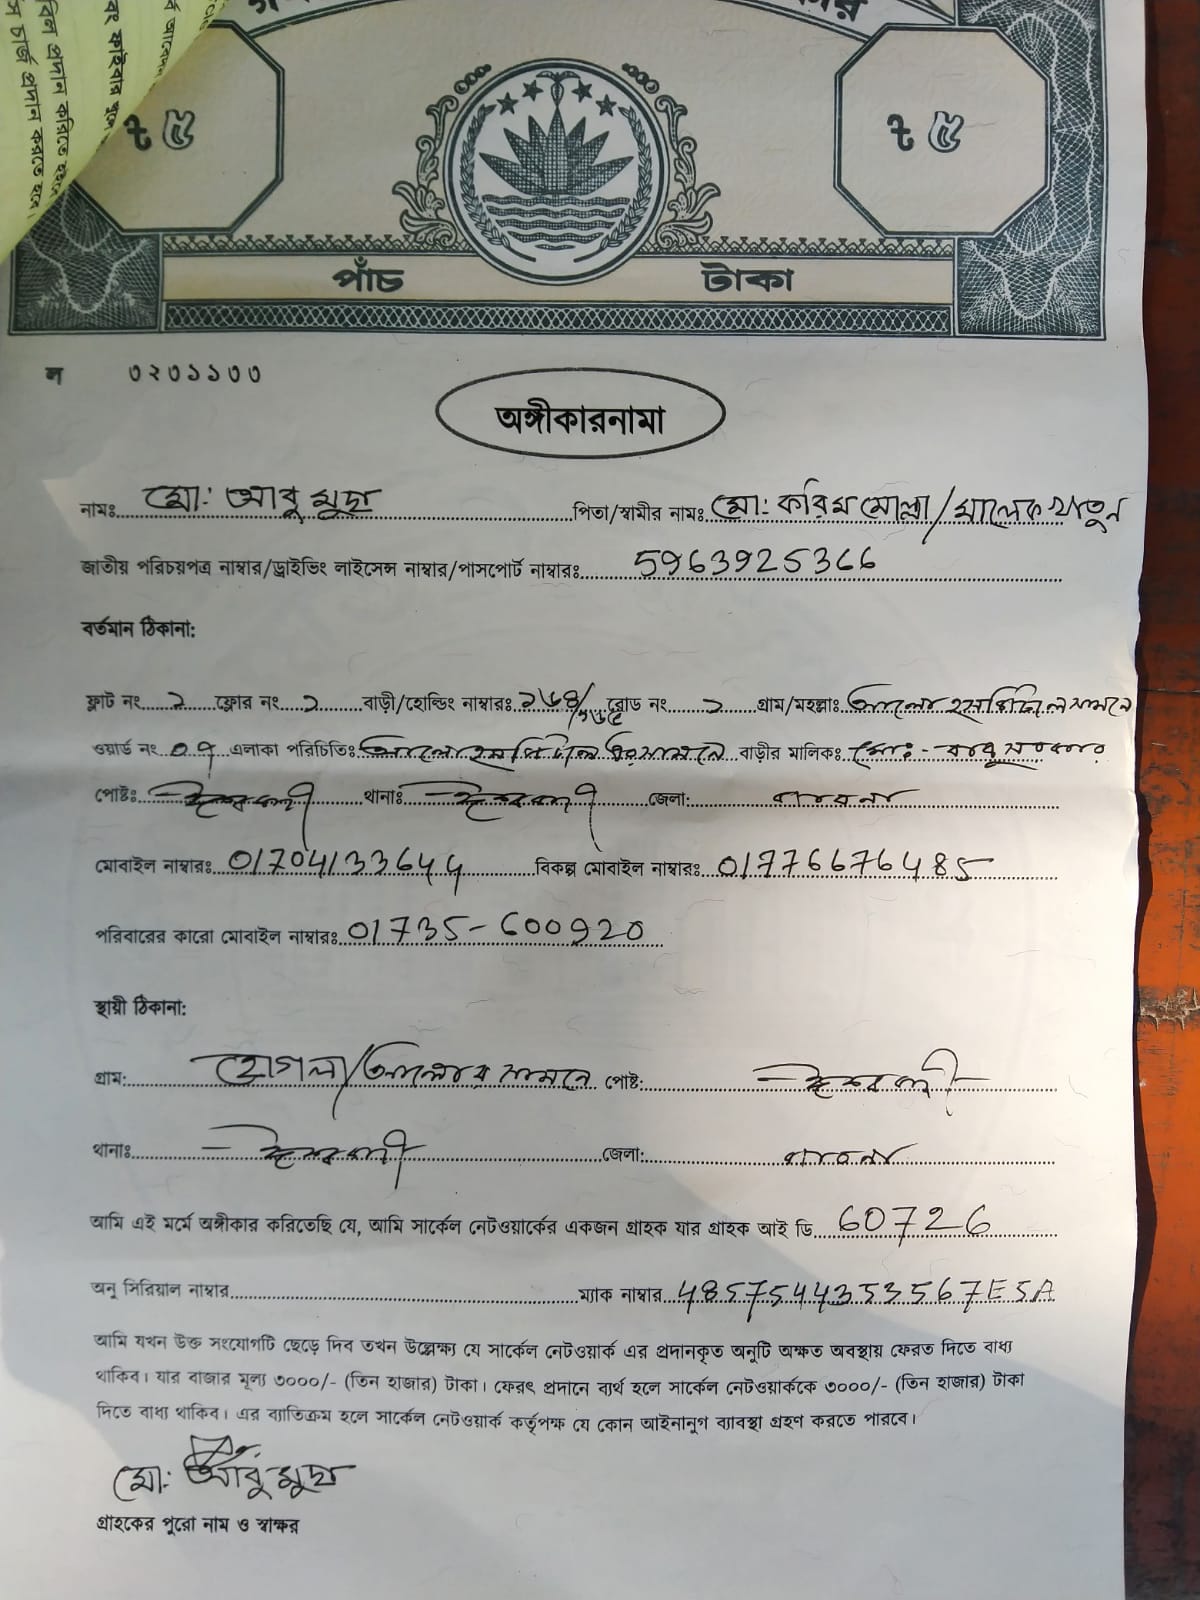 ৳ ৫
৳ ৫
পাঁচ টাকা
ল ৩২৩১১৩৩
অঙ্গীকারনামা
নামঃ মো: আবু মুছা পিতা/স্বামীর নামঃ মো: করিম মোল্লা/মালেক খাতুন
জাতীয় পরিচয়পত্র নাম্বার/ড্রাইভিং লাইসেন্স নাম্বার/পাসপোর্ট নাম্বারঃ 5963925366
বর্তমান ঠিকানা:
ফ্লাট নং ২ ফ্লোর নং ১ বাড়ী/হোল্ডিং নাম্বারঃ রোড নং ১ গ্রাম/মহল্লাঃ আলো হসপিটালের সামনে
ওয়ার্ড নং ০৭ এলাকা পরিচিতিঃ আলো হসপিটালের সামনে বাড়ীর মালিকঃ মোঃ - বাবু সরকার
পোষ্টঃ ঈশ্বরদী থানাঃ ঈশ্বরদী জেলা: পাবনা
মোবাইল নাম্বারঃ 01704133644 বিকল্প মোবাইল নাম্বারঃ 01776676485
পরিবারের কারো মোবাইল নাম্বারঃ 01735-600920
স্থায়ী ঠিকানা:
গ্রাম: /আলোর সামনে পোষ্ট: ঈশ্বরদী
থানাঃ ঈশ্বরদী জেলা: পাবনা
আমি এই মর্মে অঙ্গীকার করিতেছি যে, আমি সার্কেল নেটওয়ার্কের একজন গ্রাহক যার গ্রাহক আই ডি 60726
অনু সিরিয়াল নাম্বার ম্যাক নাম্বার 4857544353567E5A
আমি যখন উক্ত সংযোগটি ছেড়ে দিব তখন উল্লেক্ষ্য যে সার্কেল নেটওয়ার্ক এর প্রদানকৃত অনুটি অক্ষত অবস্থায় ফেরত দিতে বাধ্য
থাকিব। যার বাজার মূল্য ৩০০০/- (তিন হাজার) টাকা। ফেরৎ প্রদানে ব্যর্থ হলে সার্কেল নেটওয়ার্ককে ৩০০০/- (তিন হাজার) টাকা
দিতে বাধ্য থাকিব। এর ব্যাতিক্রম হলে সার্কেল নেটওয়ার্ক কর্তৃপক্ষ যে কোন আইনানুগ ব্যাবস্থা গ্রহণ করতে পারবে।
মো: আবু মুছা
গ্রাহকের পুরো নাম ও স্বাক্ষর